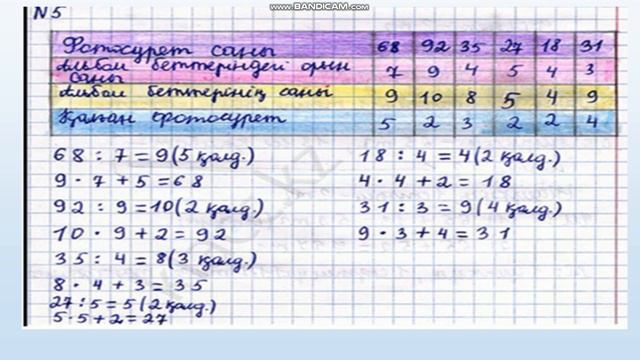 www.BANDICAM.com
N 5
Фотосурет саны 68 92 35 27 18 31
Альбом беттеріндегі орын саны 7 9 4 5 4 3
Альбом беттерінің саны 9 10 8 5 4 9
Қалған фотосурет 5 2 3 2 2 4
68 : 7 = 9 (5 қалд.)
9 · 7 + 5 = 68
92 : 9 = 10 (2 қалд.)
10 · 9 + 2 = 92
35 : 4 = 8 (3 қалд.)
8 · 4 + 3 = 35
27 : 5 = 5 (2 қалд.)
5 · 5 + 2 = 27
18 : 4 = 4 (2 қалд.)
4 · 4 + 2 = 18
31 : 3 = 9 (4 қалд.)
9 · 3 + 4 = 31